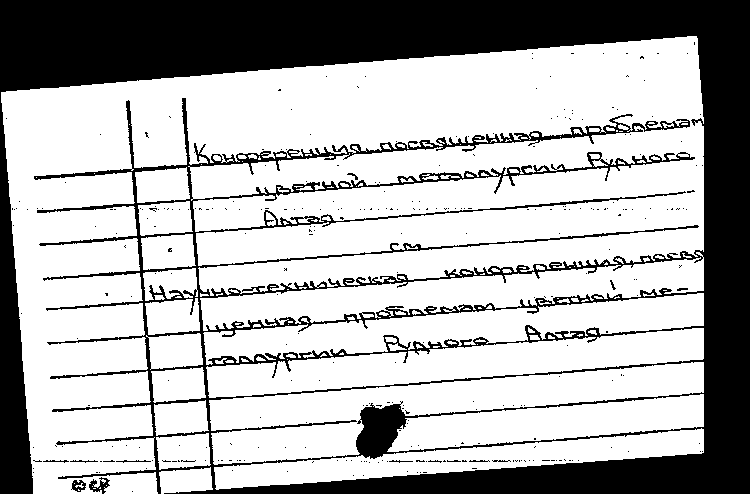 Конференция, посвященная проблемам
цветной металлургии Рудного
Алтая.
см
Научно-техническая конференция, посвя
щенная проблемам цветной ме-
таллургии Рудного Алтая.